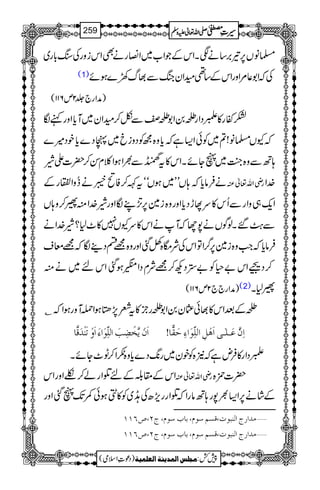 سیرتِ مصطفیٰ صلی اللہ تعالیٰ علیہ وسلم
259
مسلمانوں پر تیر برسانے لگے۔ اس کے جواب میں انصار نے بھی اس زور کی سنگ باری
کی کہ ابو عامر اور اس کے ساتھی میدان جنگ سے بھاگ کھڑے ہوئے (1)
(مدارج جلد ۲ ص ۱۱۶)
لشکر کفار کا علمبردار طلحہ بن ابو طلحہ صف سے نکل کر میدان میں آیا اور کہنے لگا
کہ کیوں مسلمانو! تم میں کوئی ایسا ہے کہ یا وہ مجھ کو دوزخ میں پہنچا دے یا خود میرے
ہاتھ سے وہ جنت میں پہنچ جائے۔ اس کا یہ گھمنڈ سے بھرا ہوا کلام سن کر حضرت علی شیر
خدا رضی اللہ تعالیٰ عنہ نے فرمایا کہ ہاں میں ’’ہوں‘‘ یہ کہہ کر فاتح خیبر نے ذوالفقار کے
ایک ہی وار سے اُس کا سر پھاڑ دیا اور وہ زمین پر تڑپنے لگا اور شیر خدا منہ پھیر کر وہاں
سے ہٹ گئے۔ لوگوں نے پوچھا کہ آپ نے اس کا سر کیوں نہیں کاٹ لیا؟ شیر خدا نے
فرمایا کہ جب وہ زمین پر گرا تو اس کی شرمگاہ کھل گئی اور وہ مجھے قسم دینے لگا کہ مجھے معاف
کر دیجیے اس بے حیا کو بے ستر دیکھ کر مجھے شرم دامنگیر ہو گئی اس لئے میں نے منہ
پھیر لیا۔ (2) (مدارج ج ۲ ص ۱۱۶)
طلحہ کے بعد اس کا بھائی عثمان بن ابو طلحہ رجز کا یہ شعر پڑھتا ہوا حملہ آور ہوا کہ ؎
اِنَّ عَلٰی اَھْلِ اللِّوَاءِ حَقًّا ! اَنْ یَّخْضِبَ اللِّوَاءَ اَوْ تَنْدَقَّا
علمبردار کا فرض ہے کہ نیزہ کو خون میں رنگ دے یا وہ ٹکرا کر ٹوٹ جائے۔
حضرت حمزہ رضی اللہ تعالیٰ عنہ اس کے مقابلہ کے لئے تلوار لے کر نکلے اور اس
کے شانے پر ایسا بھرپور ہاتھ مارا کہ تلوار ریڑھ کی ہڈی کو کاٹتی ہوئی کمر تک پہنچ گئی اور
1.....مدارج النبوت، قسم سوم، باب سوم، ج۲، ص۱۱۶
2.....مدارج النبوت، قسم سوم، باب سوم، ج۲، ص۱۱۶
پیش کش: مجلس المدینۃ العلمیۃ (دعوتِ اسلامی)